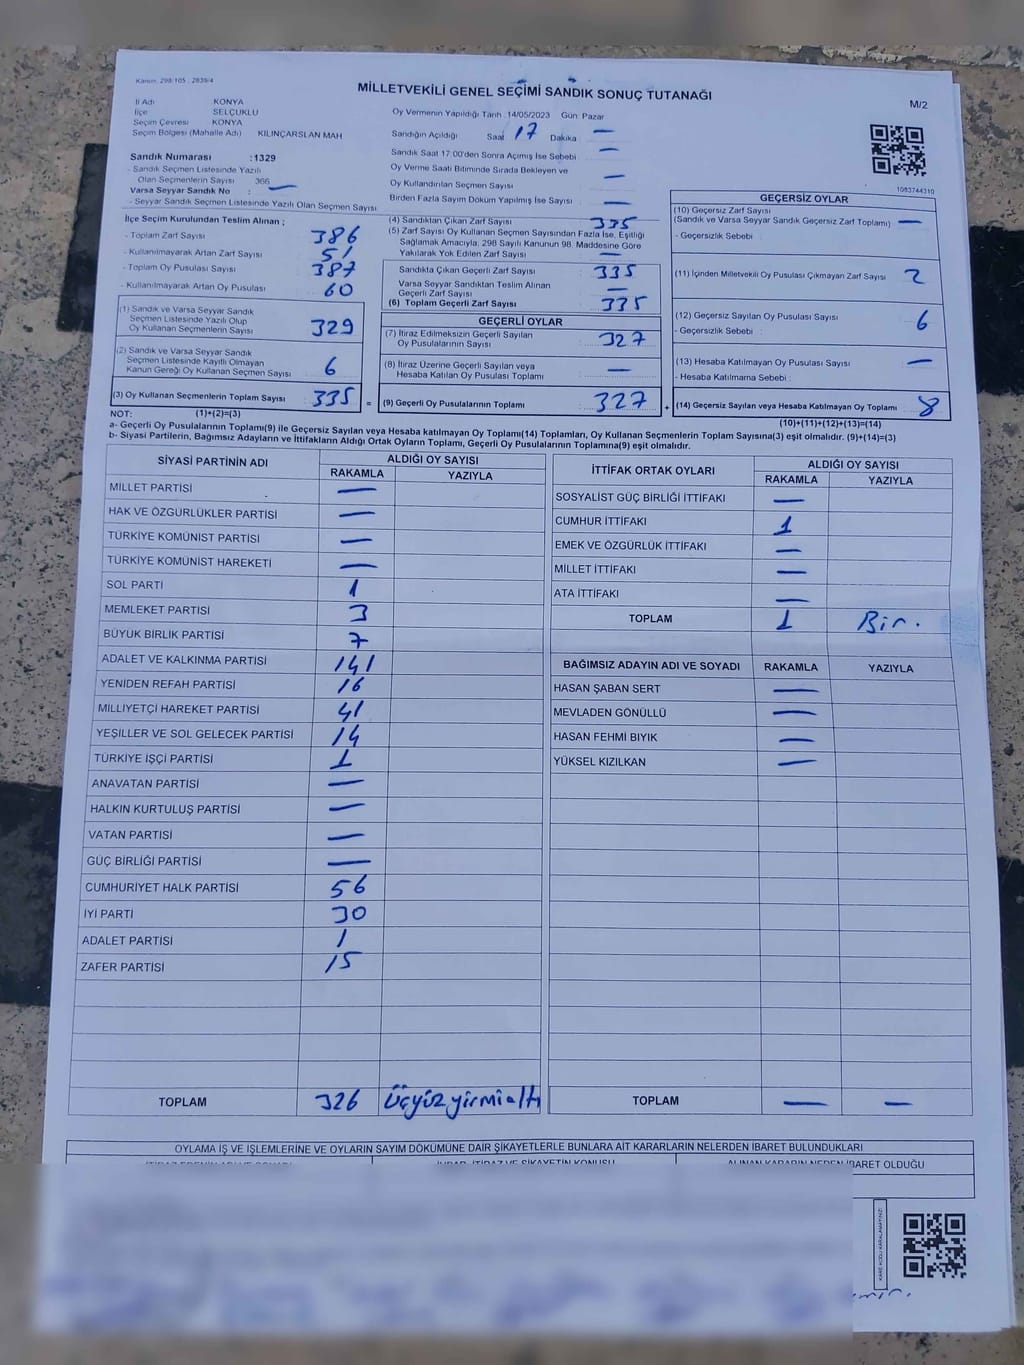 Kanun: 298/105 : 2839/4
MİLLETVEKİLİ GENEL SEÇİMİ SANDIK SONUÇ TUTANAĞI
M/2
İl Adı KONYA
İlçe SELÇUKLU
Seçim Çevresi KONYA
Seçim Bölgesi (Mahalle Adı) KILINÇARSLAN MAH
Oy Vermenin Yapıldığı Tarih :14/05/2023 Gün: Pazar
Sandığın Açıldığı Saat 17 Dakika —
Sandık Saat 17:00'den Sonra Açımış İse Sebebi —
Oy Verme Saati Bitiminde Sırada Bekleyen ve
Oy Kullandırılan Seçmen Sayısı —
Birden Fazla Sayım Döküm Yapılmış İse Sayısı —
Sandık Numarası :1329
- Sandık Seçmen Listesinde Yazılı
Olan Seçmenlerin Sayısı 366
Varsa Seyyar Sandık No : —
- Seyyar Sandık Seçmen Listesinde Yazılı Olan Seçmen Sayısı
1083744310
İlçe Seçim Kurulundan Teslim Alınan ;
- Toplam Zarf Sayısı 386
- Kullanılmayarak Artan Zarf Sayısı 51
- Toplam Oy Pusulası Sayısı 387
- Kullanılmayarak Artan Oy Pusulası 60
(1) Sandık ve Varsa Seyyar Sandık
Seçmen Listesinde Yazılı Olup
Oy Kullanan Seçmenlerin Sayısı 329
(2) Sandık ve Varsa Seyyar Sandık
Seçmen Listesinde Kayıtlı Olmayan
Kanun Gereği Oy Kullanan Seçmen Sayısı 6
(3) Oy Kullanan Seçmenlerin Toplam Sayısı 335
(4) Sandıktan Çıkan Zarf Sayısı 335
(5) Zarf Sayısı Oy Kullanan Seçmen Sayısından Fazla İse, Eşitliği
Sağlamak Amacıyla, 298 Sayılı Kanunun 98. Maddesine Göre
Yakılarak Yok Edilen Zarf Sayısı —
Sandıkta Çıkan Geçerli Zarf Sayısı 335
Varsa Seyyar Sandıktan Teslim Alınan
Geçerli Zarf Sayısı —
(6) Toplam Geçerli Zarf Sayısı 335
GEÇERLİ OYLAR
(7) İtiraz Edilmeksizin Geçerli Sayılan
Oy Pusulalarının Sayısı 327
(8) İtiraz Üzerine Geçerli Sayılan veya
Hesaba Katılan Oy Pusulası Toplamı —
= (9) Geçerli Oy Pusulalarının Toplamı 327 +
GEÇERSİZ OYLAR
(10) Geçersiz Zarf Sayısı
(Sandık ve Varsa Seyyar Sandık Geçersiz Zarf Toplamı) —
- Geçersizlik Sebebi :
(11) İçinden Milletvekili Oy Pusulası Çıkmayan Zarf Sayısı 2
(12) Geçersiz Sayılan Oy Pusulası Sayısı 6
- Geçersizlik Sebebi :
(13) Hesaba Katılmayan Oy Pusulası Sayısı —
- Hesaba Katılmama Sebebi :
(14) Geçersiz Sayılan veya Hesaba Katılmayan Oy Toplamı 8
NOT: (1)+(2)=(3)
(10)+(11)+(12)+(13)=(14)
a- Geçerli Oy Pusulalarının Toplamı(9) ile Geçersiz Sayılan veya Hesaba katılmayan Oy Toplamı(14) Toplamları, Oy Kullanan Seçmenlerin Toplam Sayısına(3) eşit olmalıdır. (9)+(14)=(3)
b- Siyasi Partilerin, Bağımsız Adayların ve İttifakların Aldığı Ortak Oyların Toplamı, Geçerli Oy Pusulalarının Toplamına(9) eşit olmalıdır.
SİYASİ PARTİNİN ADI ALDIĞI OY SAYISI
RAKAMLA YAZIYLA
MİLLET PARTİSİ —
HAK VE ÖZGÜRLÜKLER PARTİSİ —
TÜRKİYE KOMÜNİST PARTİSİ —
TÜRKİYE KOMÜNİST HAREKETİ —
SOL PARTİ 1
MEMLEKET PARTİSİ 3
BÜYÜK BİRLİK PARTİSİ 7
ADALET VE KALKINMA PARTİSİ 141
YENİDEN REFAH PARTİSİ 16
MİLLİYETÇİ HAREKET PARTİSİ 41
YEŞİLLER VE SOL GELECEK PARTİSİ 14
TÜRKİYE İŞÇİ PARTİSİ 1
ANAVATAN PARTİSİ —
HALKIN KURTULUŞ PARTİSİ —
VATAN PARTİSİ —
GÜÇ BİRLİĞİ PARTİSİ —
CUMHURİYET HALK PARTİSİ 56
İYİ PARTİ 30
ADALET PARTİSİ 1
ZAFER PARTİSİ 15
TOPLAM 326 Üçyüzyirmialtı
İTTİFAK ORTAK OYLARI ALDIĞI OY SAYISI
RAKAMLA YAZIYLA
SOSYALİST GÜÇ BİRLİĞİ İTTİFAKI —
CUMHUR İTTİFAKI 1
EMEK VE ÖZGÜRLÜK İTTİFAKI —
MİLLET İTTİFAKI —
ATA İTTİFAKI —
TOPLAM 1 Bir.
BAĞIMSIZ ADAYIN ADI VE SOYADI RAKAMLA YAZIYLA
HASAN ŞABAN SERT —
MEVLADEN GÖNÜLLÜ —
HASAN FEHMİ BIYIK —
YÜKSEL KIZILKAN —
TOPLAM — —
OYLAMA İŞ VE İŞLEMLERİNE VE OYLARIN SAYIM DÖKÜMÜNE DAİR ŞİKAYETLERLE BUNLARA AİT KARARLARIN NELERDEN İBARET BULUNDUKLARI
ALINAN KARARIN NEDEN İBARET OLDUĞU
KARE KODU KARALAMAYINIZ!